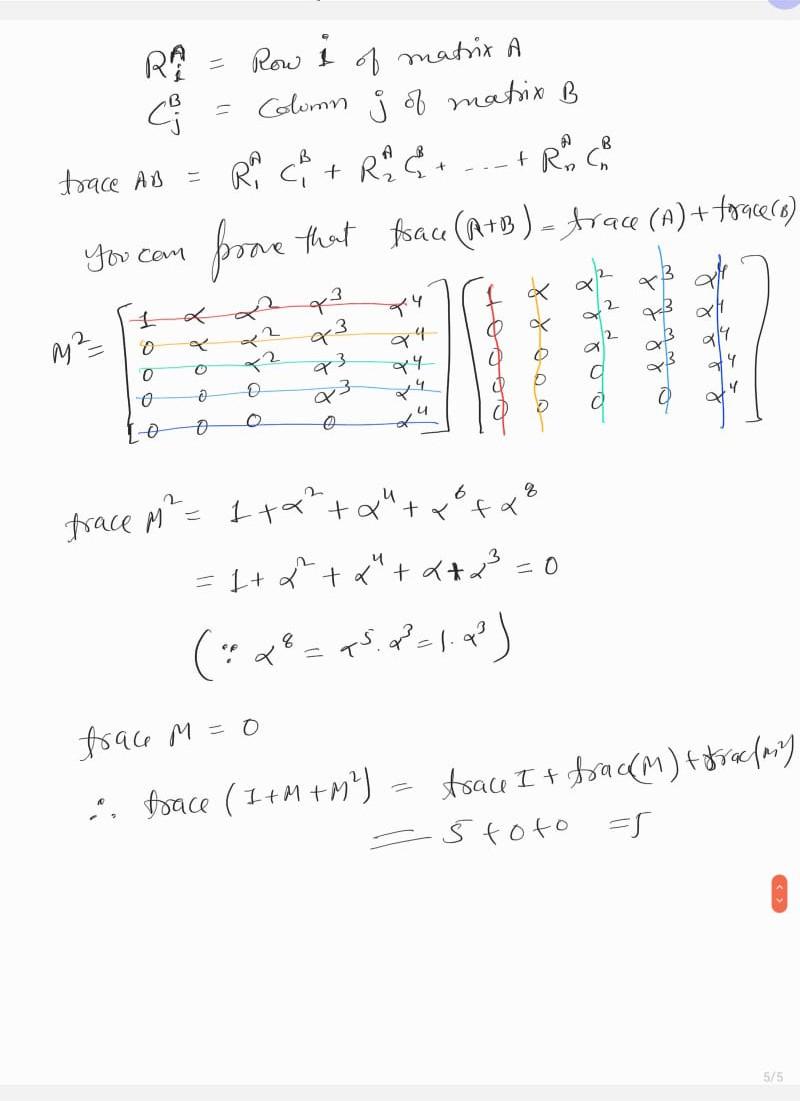 Rᵢᴬ = Row i of matrix A
Cⱼᴮ = Column j of matrix B
trace AB = R₁ᴬ C₁ᴮ + R₂ᴬ C₂ᴮ + ---- + Rₙᴬ Cₙᴮ
You can prove that trace (A+B) = trace (A) + trace(B)
M² = [1 α α² α³ α⁴] [1 α α² α³ α⁴]
0 α α² α³ α⁴ 0 α α² α³ α⁴
0 0 α² α³ α⁴ 0 0 α² α³ α⁴
0 0 0 α³ α⁴ 0 0 0 α³ α⁴
0 0 0 0 α⁴ 0 0 0 0 α⁴
trace M² = 1 + α² + α⁴ + α⁶ + α⁸
= 1 + α² + α⁴ + α + α³ = 0
(∵ α⁸ = α⁵. α³ = 1. α³)
trace M = 0
∴ trace (I+M+M²) = trace I + trac(M) + trac(M²)
= 5 + 0 + 0 = 5
5/5